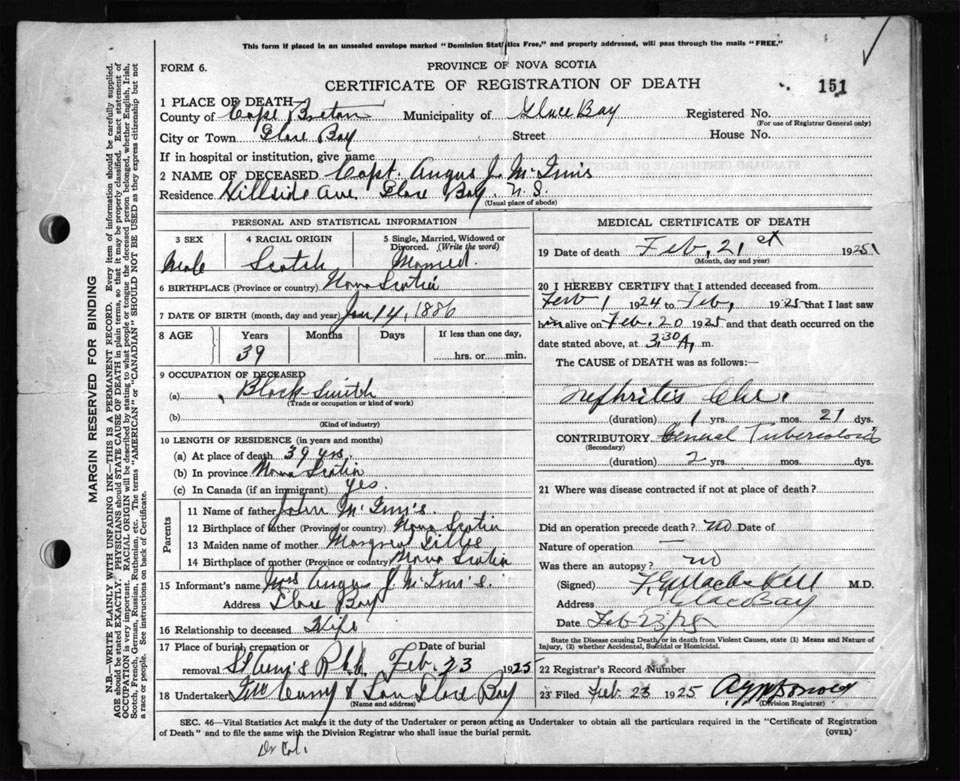 This form if placed in an unsealed envelope marked "Dominion Statistics Free," and properly addressed, will pass through the mails "FREE."
FORM 6.
PROVINCE OF NOVA SCOTIA
CERTIFICATE OF REGISTRATION OF DEATH
151
1 PLACE OF DEATH
County of Cape Breton Municipality of Glace Bay Registered No.
(For use of Registrar General only)
City or Town Glace Bay Street House No.
If in hospital or institution, give name
2 NAME OF DECEASED Capt. Angus J. McInnis
Residence Hillside Ave Glace Bay N.S.
(Usual place of abode)
PERSONAL AND STATISTICAL INFORMATION
3 SEX 4 RACIAL ORIGIN 5 Single, Married, Widowed or Divorced. (Write the word)
Male Scotch Married.
6 BIRTHPLACE (Province or country) Nova Scotia
7 DATE OF BIRTH (month, day and year) Jan 14, 1886
8 AGE Years Months Days If less than one day,
39 hrs. or min.
9 OCCUPATION OF DECEASED
(a) Black-Smith
(Trade or occupation or kind of work)
(b)
(Kind of industry)
10 LENGTH OF RESIDENCE (in years and months)
(a) At place of death 39 yrs.
(b) In province Nova Scotia
(c) In Canada (if an immigrant) yes.
Parents
11 Name of father John McInnis
12 Birthplace of father (Province or country) Nova Scotia
13 Maiden name of mother Margaret Gillis
14 Birthplace of mother (Province or country) Nova Scotia
15 Informant's name Mrs Angus J McInnis
Address Glace Bay
16 Relationship to deceased Wife
17 Place of burial, cremation or removal Date of burial
Feb. 23 1925
18 Undertaker & Son Glace Bay
(Name and address)
MEDICAL CERTIFICATE OF DEATH
19 Date of death Feb, 21st 1925
(Month, day and year)
20 I HEREBY CERTIFY that I attended deceased from
Feb 1 1924 to Feb, 1925 that I last saw
him alive on Feb. 20 1925 and that death occurred on the
date stated above, at 3:30 A, m.
The CAUSE of DEATH was as follows:—
Nephritis Chr.
(duration) 1 yrs. mos. 21 dys.
CONTRIBUTORY General Tuberculosis
(Secondary)
(duration) 2 yrs. mos. dys.
21 Where was disease contracted if not at place of death?
Did an operation precede death? no Date of
Nature of operation —
Was there an autopsy? no
(Signed) M.D.
Address Glace Bay
Date Feb 23/25
State the Disease causing Death, or in death from Violent Causes, state (1) Means and Nature of
Injury, (2) whether Accidental, Suicidal or Homicidal.
22 Registrar's Record Number
23 Filed Feb 23 1925
(Division Registrar)
SEC. 46—Vital Statistics Act makes it the duty of the Undertaker or person acting as Undertaker to obtain all the particulars required in the "Certificate of Registration
of Death" and to file the same with the Division Registrar who shall issue the burial permit.
(OVER)
MARGIN RESERVED FOR BINDING
N.B.—WRITE PLAINLY WITH UNFADING INK—THIS IS A PERMANENT RECORD. Every item of information should be carefully supplied.
AGE should be stated EXACTLY. PHYSICIANS should STATE CAUSE OF DEATH in plain terms, so that it may be properly classified. Exact statement of
OCCUPATION is very important. RACIAL ORIGIN will be described by stating to what people or tongue the deceased person belonged, whether English, Irish,
Scotch, French, German, Russian, Ruthenian, etc. The terms "AMERICAN" or "CANADIAN" SHOULD NOT BE USED as they express citizenship but not
a race or people. See instructions on back of Certificate.